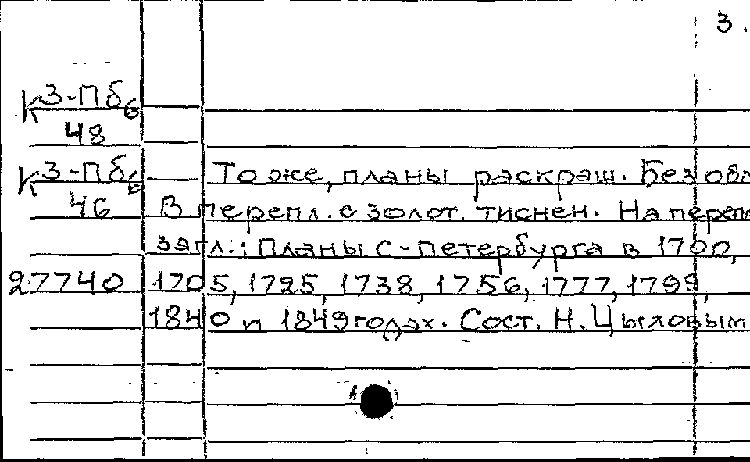 3.
К З-Пб6
48
К З-Пб6 — То же, планы раскраш. Без обл
46 В перепл. с золот. тиснен. На переп
загл.: Планы С-Петербурга в 1700,
27740 1705, 1725, 1738, 1756, 1777, 1799,
1840 и 1849 годах. Сост. Н. Цыловым